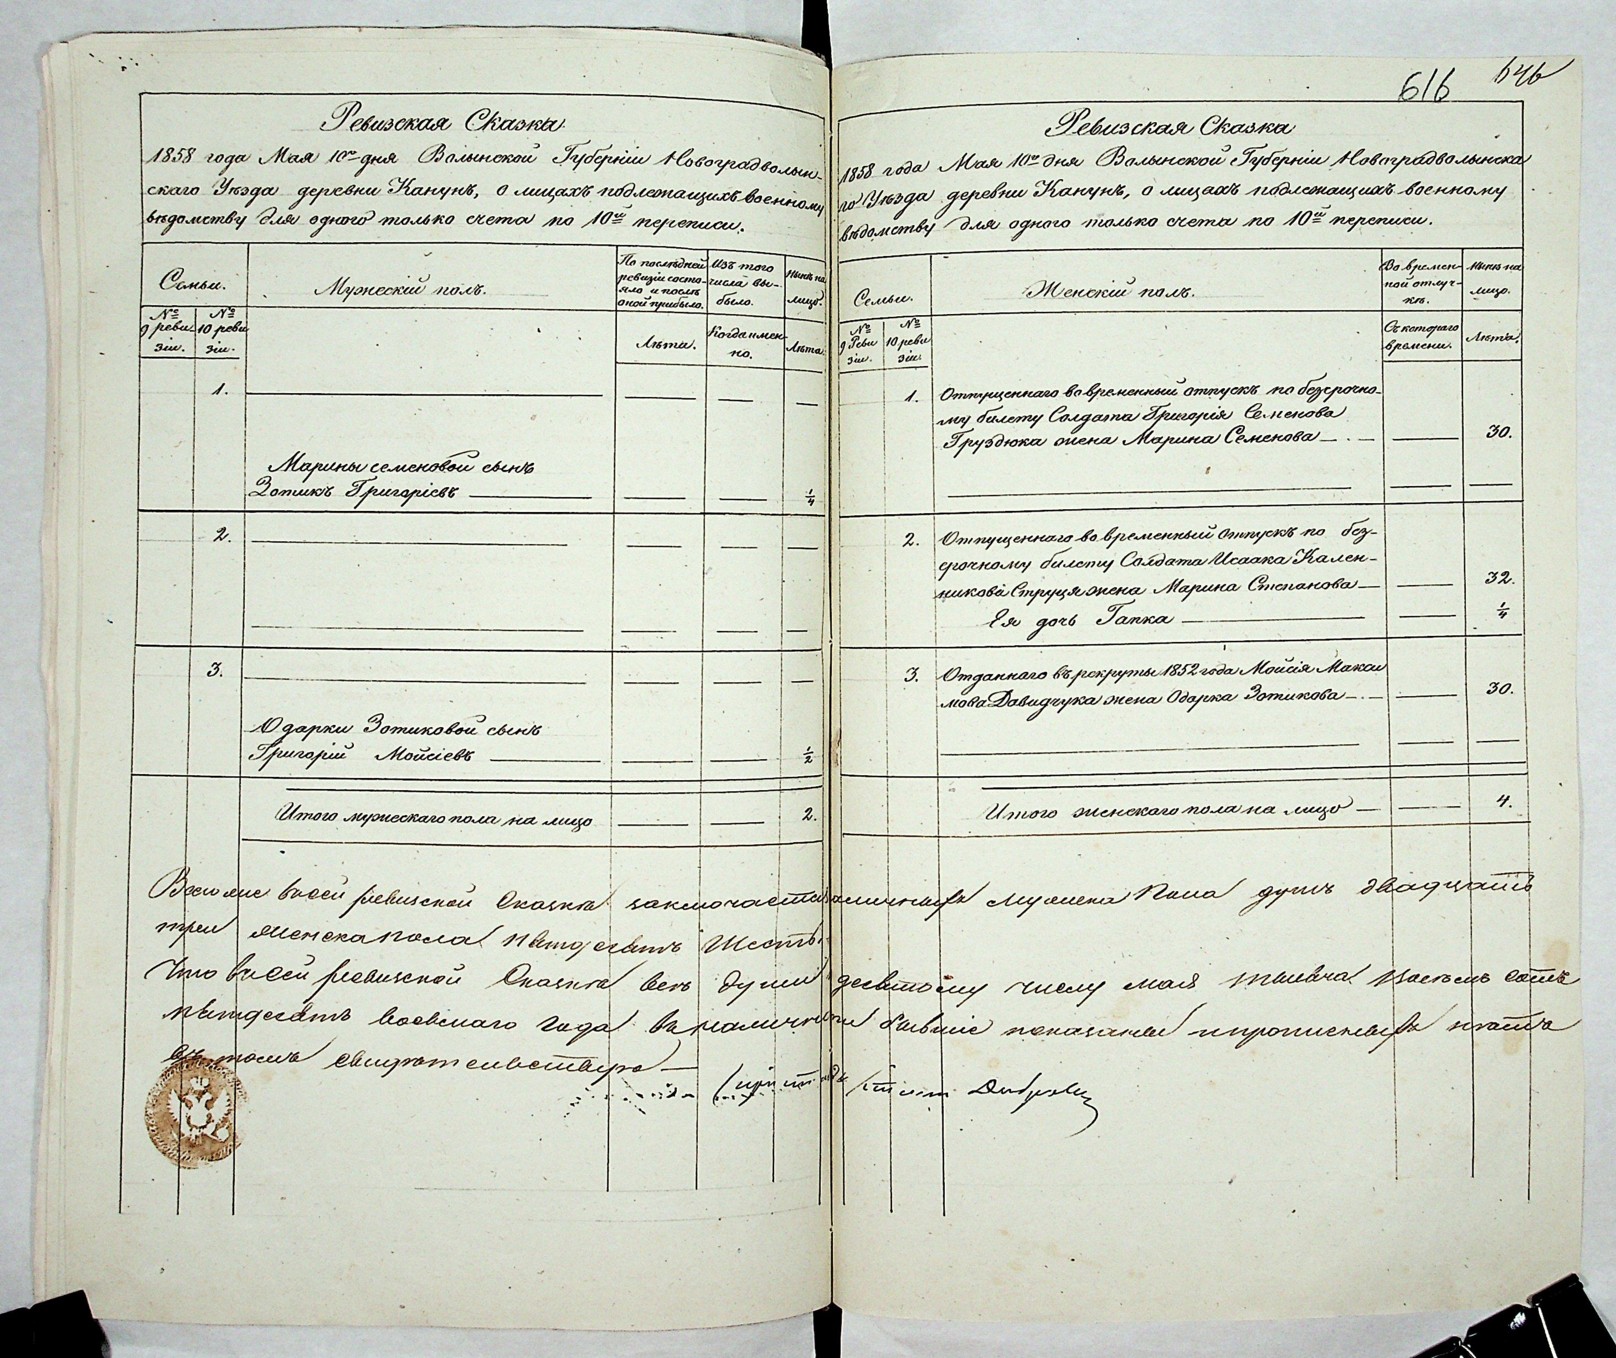 616
646
Ревизская Сказка
1858 года Мая 10го дня Волынской Губерніи Новоградволын-
скаго Уѣзда деревни Канунъ, о лицахъ подлежащихъ военному
вѣдомству для одного только счета по 10й переписи.
Семьи.
Мужескій полъ.
По послѣдней
ревизіи состо-
яло и послѣ
оной прибыло.
Изъ того
числа вы-
было.
Нынѣ на
лицо.
№
9 реви-
зіи.
№
10 реви
зіи.
Лѣта.
Когда имен-
но.
Лѣта.
1.
Марины Семеновой сынъ
Зотикъ Григоріевъ 1/4
2.
3.
Одарки Зотиковой сынъ
Григорій Мойсіевъ 1/2
Итого мужескаго пола на лицо 2.
Ревизская Сказка
1858 года Мая 10го дня Волынской Губерніи Новоградволынска
го Уѣзда деревни Канунъ, о лицахъ подлежащихъ военному
вѣдомству для одного только счета по 10й переписи.
Семьи.
Женскій полъ.
Во времен-
ной отлуч-
кѣ.
Нынѣ на
лицо.
№
9 Реви
зіи.
№
10 реви
зіи.
Съ котораго
времени.
Лѣта.
1. Отпущеннаго во временный отпускъ по безсрочно-
му билету Солдата Григорія Семенова
Груздюка жена Марина Семенова 30.
2. Отпущеннаго во временный отпускъ по без-
срочному билету Солдата Исаака Кален-
никова Струця жена Марина Степанова 32.
Ея дочь Гапка 1/4
3. Отданнаго въ рекруты 1852 года Мойсія Макси
мова Давидчука жена Одарка Зотикова 30.
Итого женскаго пола на лицо 4.
Всего въ сей ревизской Сказкѣ заключается наличныхъ мужска Пола душъ двадцать
три женска пола пятьдесятъ шесть.
Что въ сей ревизской Сказкѣ всѣ души десятому числу мая тысяча восемь сотъ
пятдесятъ восьмаго года въ наличности бывшіе показаны и прописныхъ нѣтъ
въ томъ свидѣтельствую